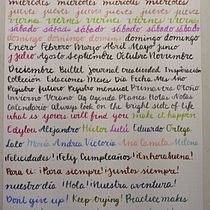 miércoles miércoles miércoles miércoles
jueves jueves jueves jueves jueves
viernes viernes viernes viernes viernes
sábado sábado sábado sábado sábado
domingo domingo domingo domingo domingo
Enero Febrero Marzo Abril Mayo Junio
Julio Agosto Septiembre Octubre Noviembre
Diciembre Bullet Journal Creatividad Inspiración
Colección Estaciones Mes Día Fecha Mes Año
Registro futuro Registro mensual Primavera Otoño
Invierno Verano Agenda Planes Notas Notas
Calendario always look on the bright side of life
what is yours will find you make it happen
Caylou Alejandro Héctor Juliá Eduardo Ortega
Lalo Andrea Victoria Ana Camila Helena
¡Felicidades! ¡Feliz Cumpleaños! ¡Enhorabuena!
Para ti ¡Para siempre! ¡Juntos siempre!
nuestro día ¡Hola! ¡Nuestra aventura!
Don't give up! Keep trying! Practice makes